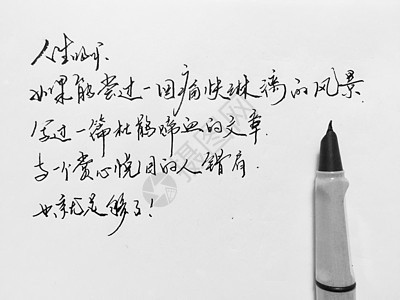 人生的旅,
如果能尝过一回痛快淋漓的风景,
写过一篇杜鹃啼血的文章,
与一个赏心悦目的人错肩,
也就足够了!
摄图网